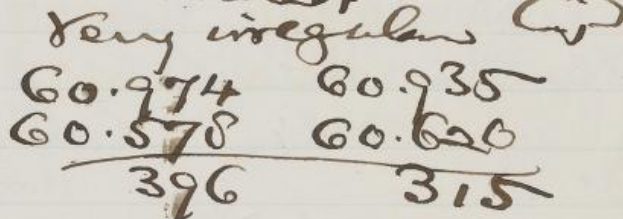 Very irregular
60.974 60.935
60.578 60.620
396 315